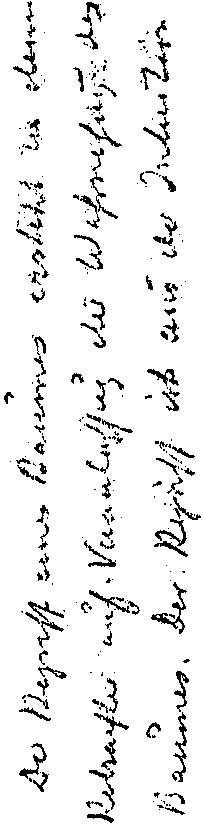 Der Begriff eines Baumes entsteht in dem
Betrachter auf Veranlassung der Wahrnehmung des
Baumes. Der Begriff ist aus der Intuition